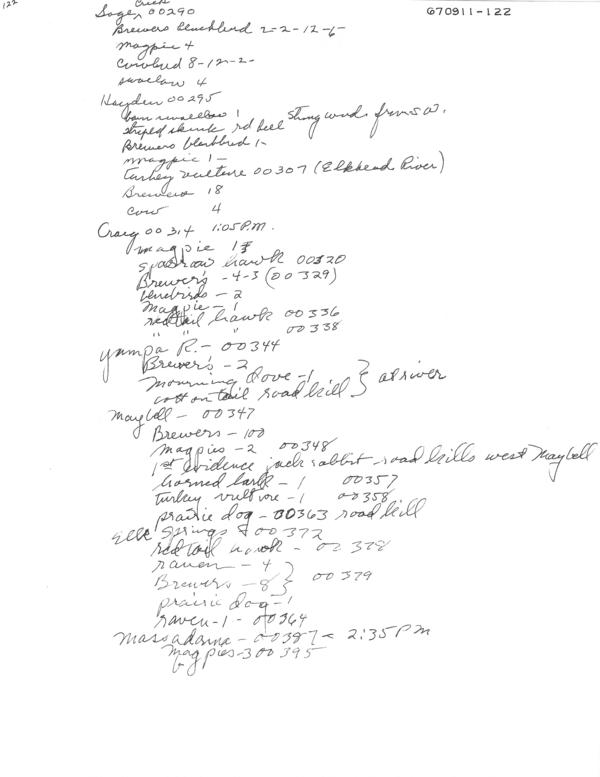 122
670911-122
Sage Creek 00290
Brewers blackbird 2-2-12-6-
magpie 4
Cowbird 8-12-2-
swallow 4
Hayden 00295
barn swallow 1
striped skunk rd kill Strong winds from SW.
Brewers blackbird 1-
magpie 1-
turkey vulture 00307 (Elkhead River)
Brewers 18
cow 4
Craig 00314 1:05 P.M.
magpie 1
sparrow hawk 00320
Brewer's -4-3 (00329)
bluebirds - 2
Magpie - 1
redtail hawk 00336
" " " 00338
Yampa R. - 00344
Brewer's - 2
mourning dove - 1
cottontail road kill } at river
Maybell - 00347
Brewers - 100
magpies - 2 00348
1st evidence jack rabbit road kills west Maybell
horned lark - 1 00357
turkey vulture - 1 00358
prairie dog - 00363 road kill
Elk Springs 00372
redtail hawk - 00378
raven - 4
Brewers - 8 } 00379
prairie dog - 1
raven - 1 - 00364
Massadona - 00387 - 2:35 PM
Magpies - 3 00395